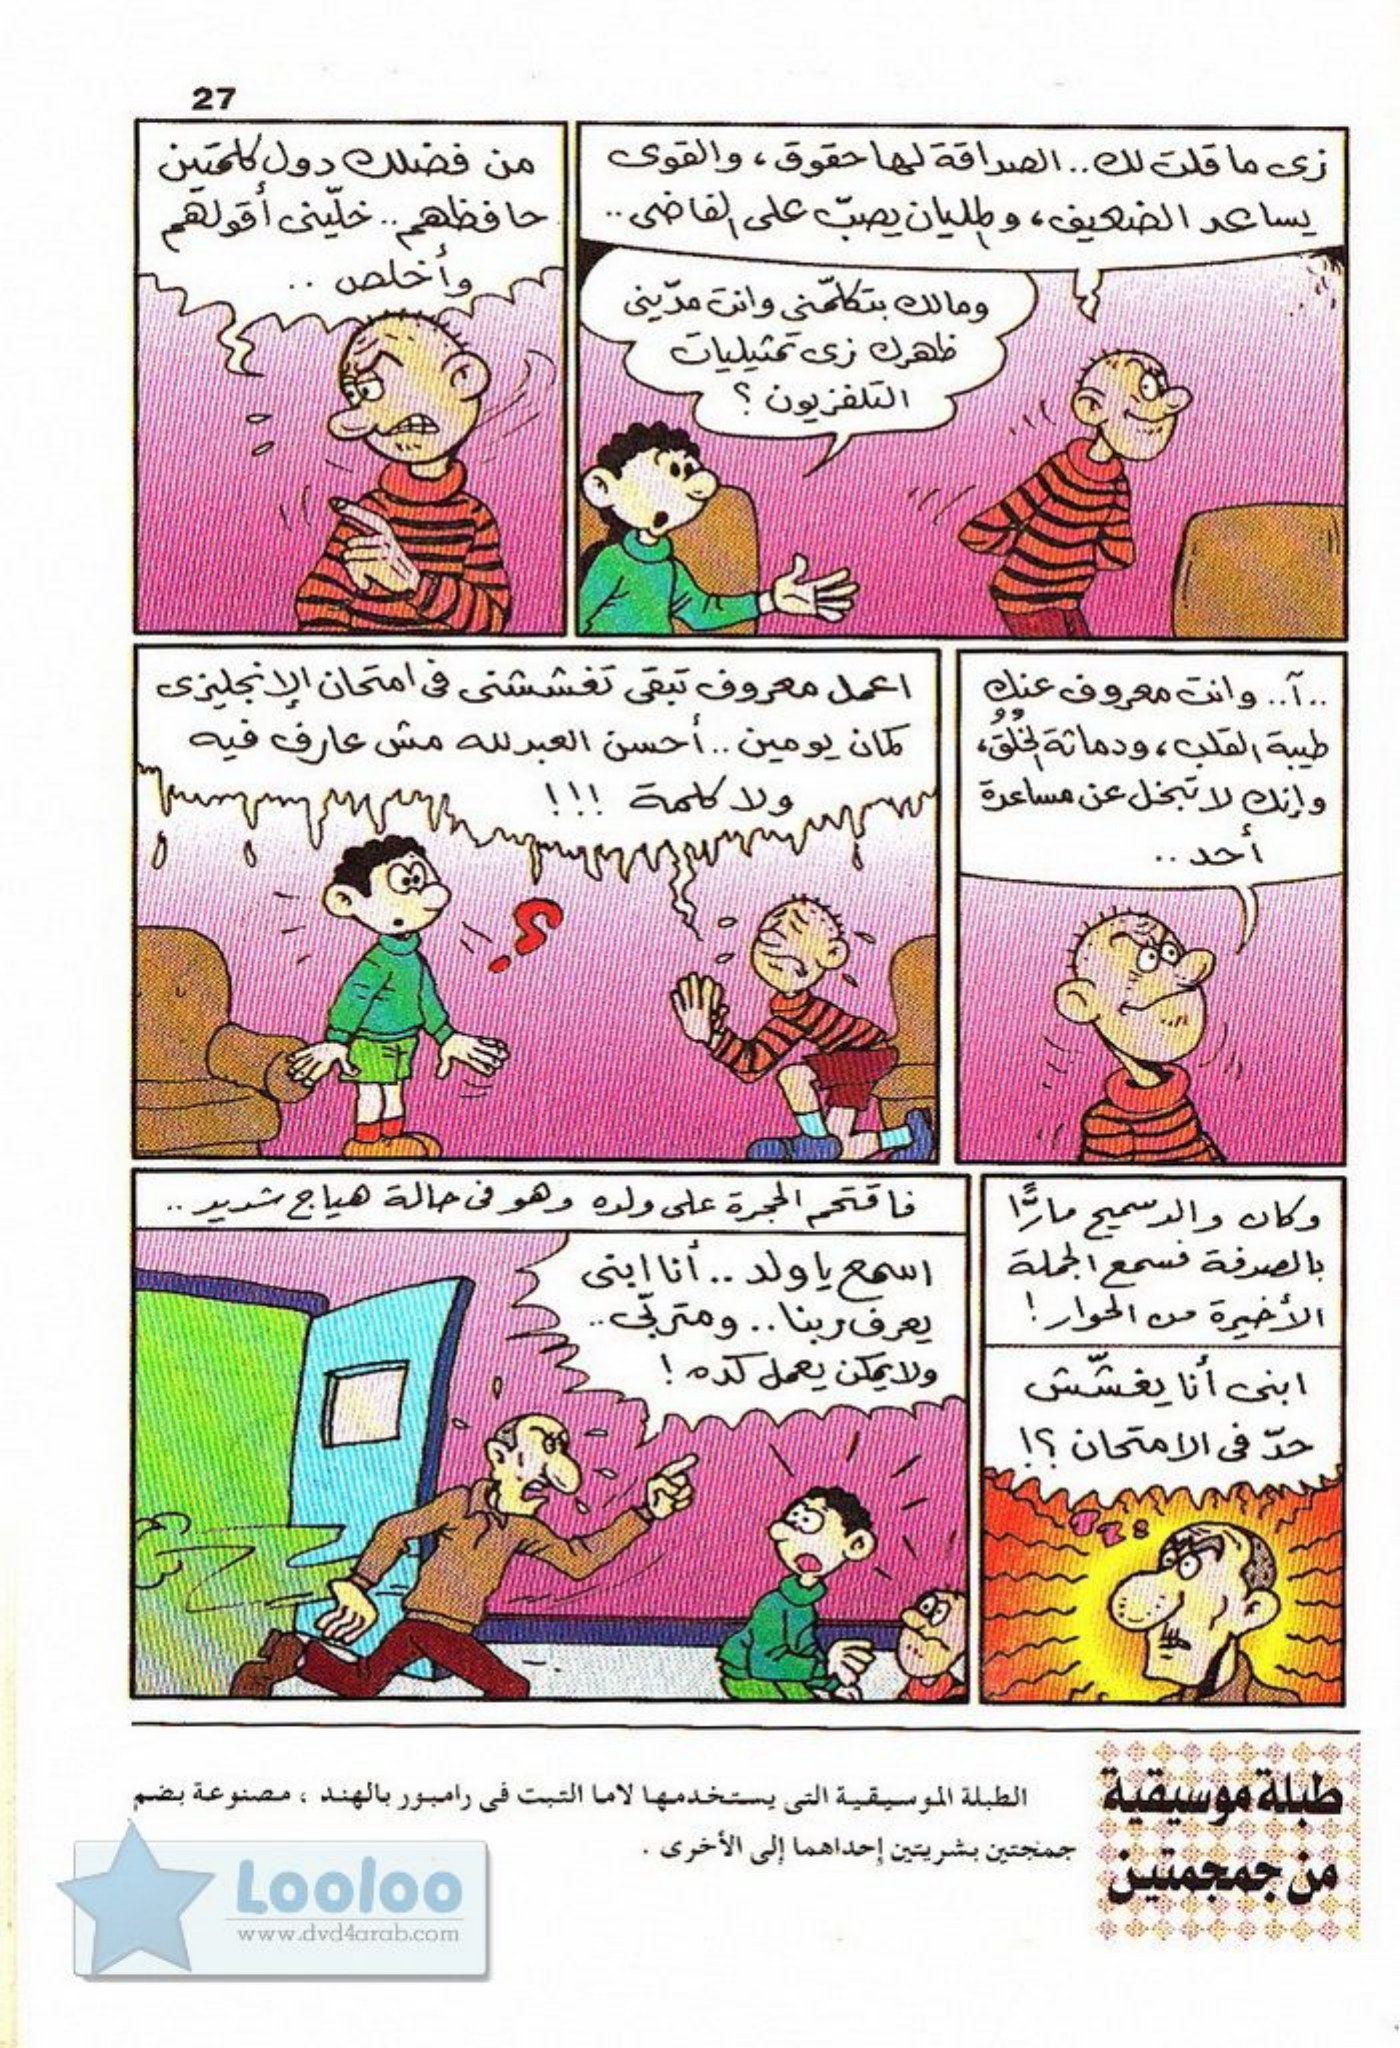 27
زى ما قلت لك.. الصداقة لها حقوق، والقوى
يساعد الضعيف، والمليان يصبّ على الفاضى..
ومالك بتكلّمنى وانت مدّينى
ظهرك زى تمثيليات
التلفزيون؟
من فضلك دول كلمتين
حافظهم.. خلّينى أقولهم
وأخلص..
..آ.. وانت معروف عنك
طيبة القلب، ودماثة الخُلُق،
وإنك لا تبخل عن مساعدة
أحد..
اعمل معروف تبقى تغششنى فى امتحان الإنجليزى
كمان يومين.. أحسن العبدلله مش عارف فيه
ولا كلمة !!!
وكان والد سميح مارًّا
بالصدفة فسمع الجملة
الأخيرة من الحوار!
ابنى أنا يغشّش
حدّ فى الامتحان؟!
فاقتحم الحجرة على ولده وهو فى حالة هياج شديد..
اسمع يا ولد.. أنا ابنى
يعرف ربنا.. ومتربّى..
ولا يمكن يعمل كده!
طبلة موسيقية
من جمجمتين
الطبلة الموسيقية التى يستخدمها لاما التبت فى رامبور بالهند ، مصنوعة بضم
جمنجتين بشريتين إحداهما إلى الأخرى .
Looloo
www.dvd4arab.com